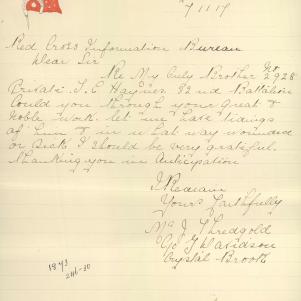 7/11/17
Red Cross Information Bureau
Dear Sir
Re My Only Brother No 2928
Private T. C. Haynes 32nd Battalion
Could you through your great &
Noble work let me have tidings
of him & in what way wounded
or sick I should be very grateful.
Thanking you in Anticipation
I Remain
Yours faithfully
Mrs J Thredgold
C/o G Davidson
Crystal Brook